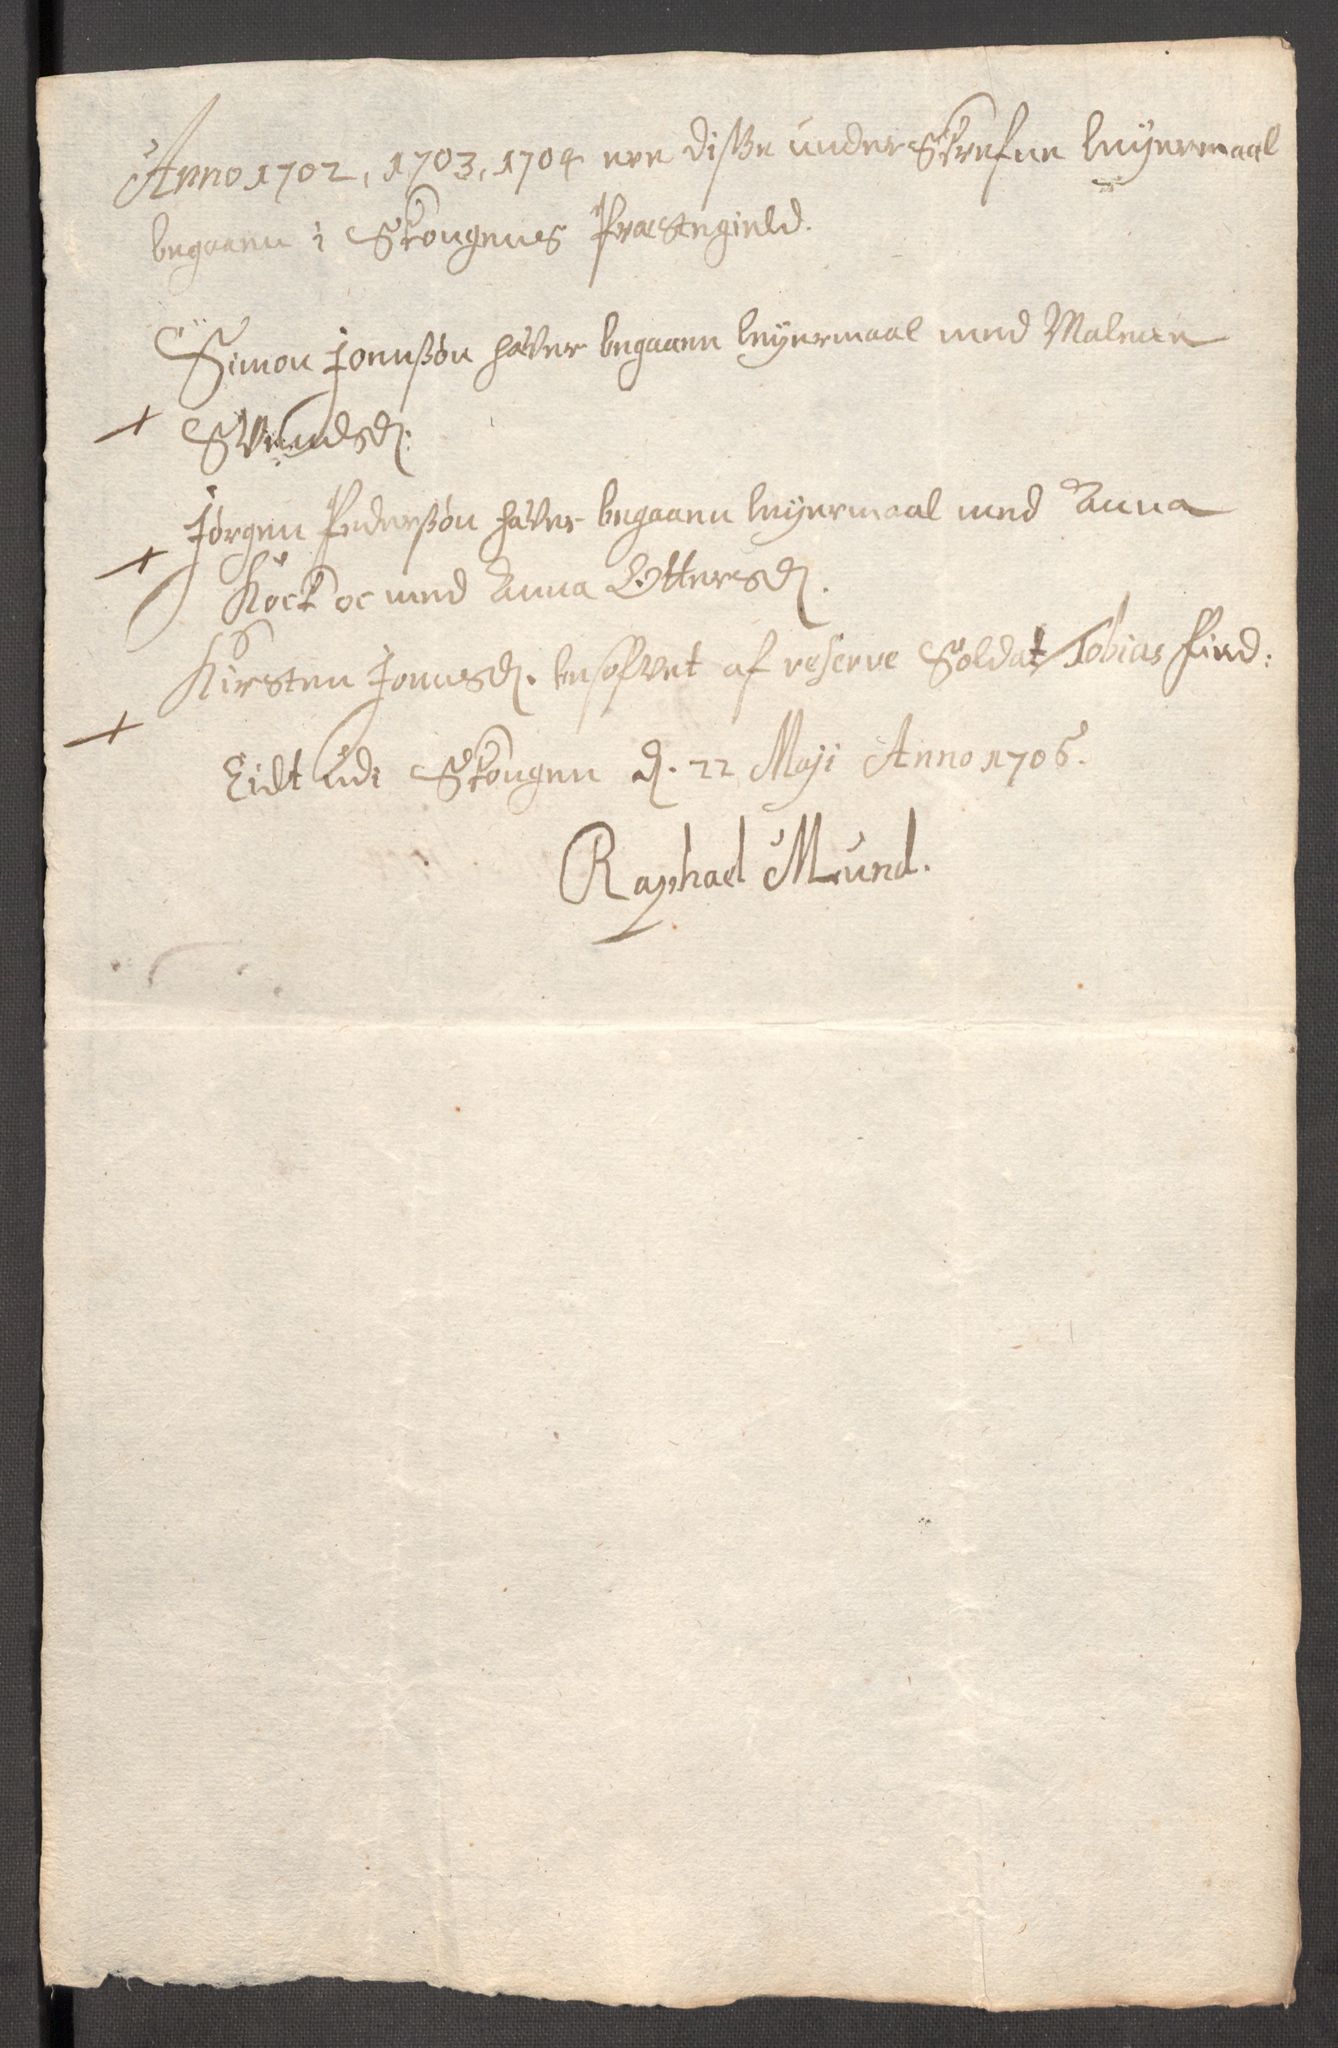 Anno 1702, 1703, 1704 ere disse underskrefne leyermaal
begaaen i Skougenes Præstegield.
Simon Jonnssøn haver begaaen leyermaal med Malene
+ Svendsd.
Jørgen Pederssøn haver begaaen leyermaal med Anna
+ Kock oc med Anna Ottersd.
Kirsten Jonnesd. besofvet af reserve Soldat Tobias Find:
+
Eidt udi Skougen d. 22 Maji Anno 1706.
Raphael Mund.